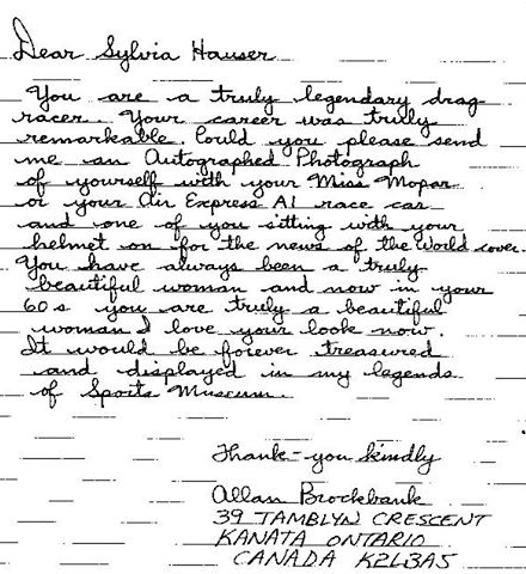 Dear Sylvia Hauser
You are a truly legendary drag
racer. Your career was truly
remarkable. Could you please send
me an Autographed Photograph
of yourself with your Miss Mopar
or your Air Express A1 race car
and one of you sitting with your
helmet on for the news of the World cover.
You have always been a truly
beautiful woman and now in your
60s you are truly a beautiful
woman I love your look now.
It would be forever treasured
and displayed in my legends
of Sports Museum.
Thank-you kindly
Allan Brockbank
39 TAMBLYN CRESCENT
KANATA ONTARIO
CANADA K2L3A5